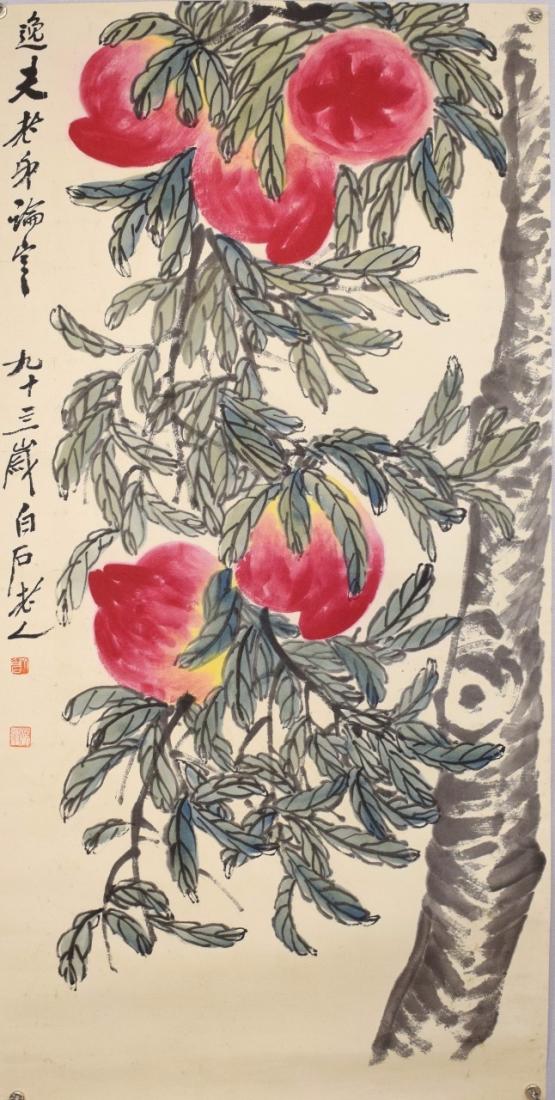 逸夫老弟論定 九十三歲白石老人